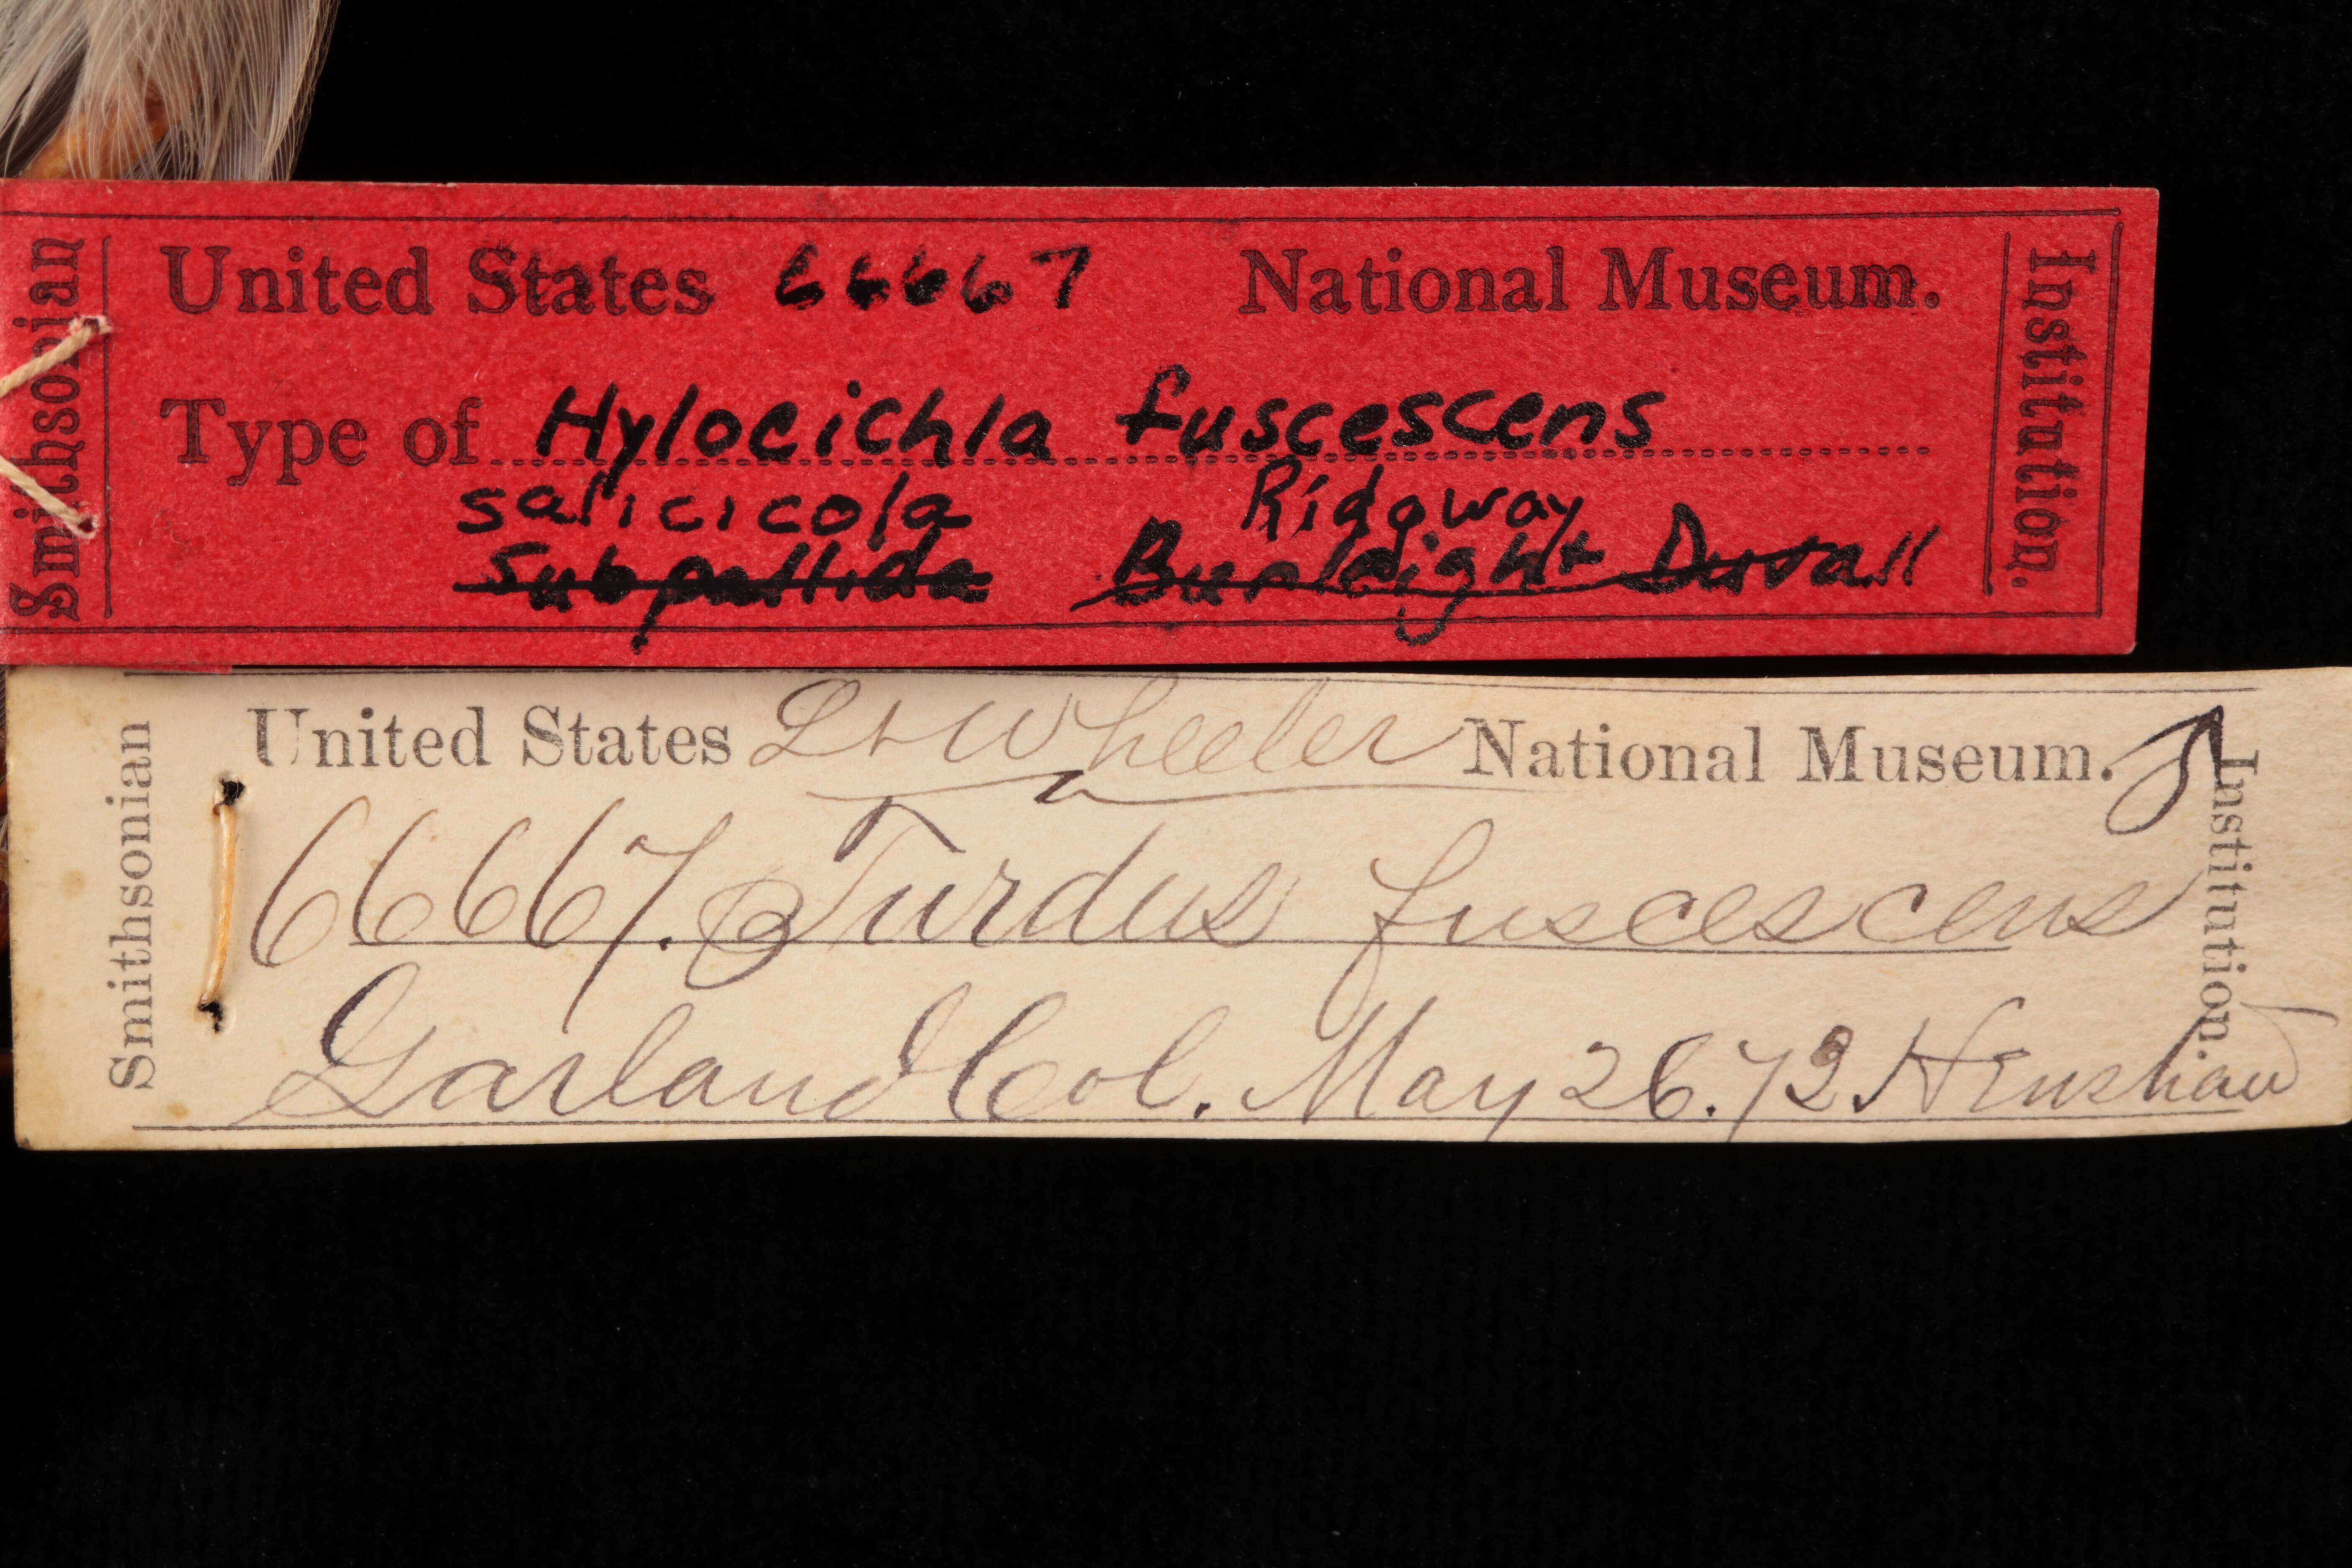 Smithsonian
United States 66667 National Museum.
Type of Hylocichla fuscescens
salicicola Ridgway
subpallida Burleigh + Duvall
Institution.
Smithsonian
United States Lt Wheeler National Museum.
66667. Turdus fuscescens
Garland Col. May 26. 73. Henshaw
Institution.